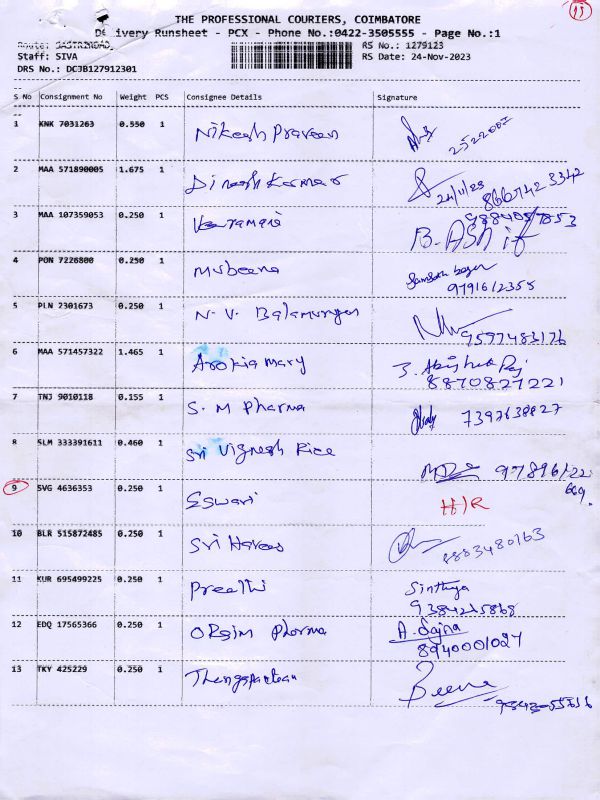 THE PROFESSIONAL COURIERS, COIMBATORE
Delivery Runsheet - PCX - Phone No.:0422-3505555 - Page No.:1
Route: SASTRIROAD RS No.: 1279123
Staff: SIVA RS Date: 24-Nov-2023
DRS No.: DCJB127912301
S No Consignment No Weight PCS Consignee Details Signature
1 KNK 7031263 0.550 1 Nikesh Praveen
2522007
2 MAA 571890005 1.675 1 Dinesh Kumar
24/11/23 8667423342
3 MAA 107359053 0.250 1
B. AShif
4 PON 7226800 0.250 1 Mubeena
9791612355
5 PLN 2301673 0.250 1 N. V. Balamurugan
9597483176
6 MAA 571457322 1.465 1 Arokia mary
J. Abishek Raj
8870827221
7 TNJ 9010118 0.155 1 S. M Pharma 7397638827
8 SLM 333391611 0.460 1 Sri Vignesh Rice
97896122
669.
9 SVG 4636353 0.250 1 Eswari H)R
10 BLR 515872485 0.250 1 Sri Harees
8883480163
11 KUR 695499225 0.250 1 Preethi Sinthuya
9384215868
12 EDQ 17565366 0.250 1 Pharma A. Sajna
8940001027
13 TKY 425229 0.250 1 Beena